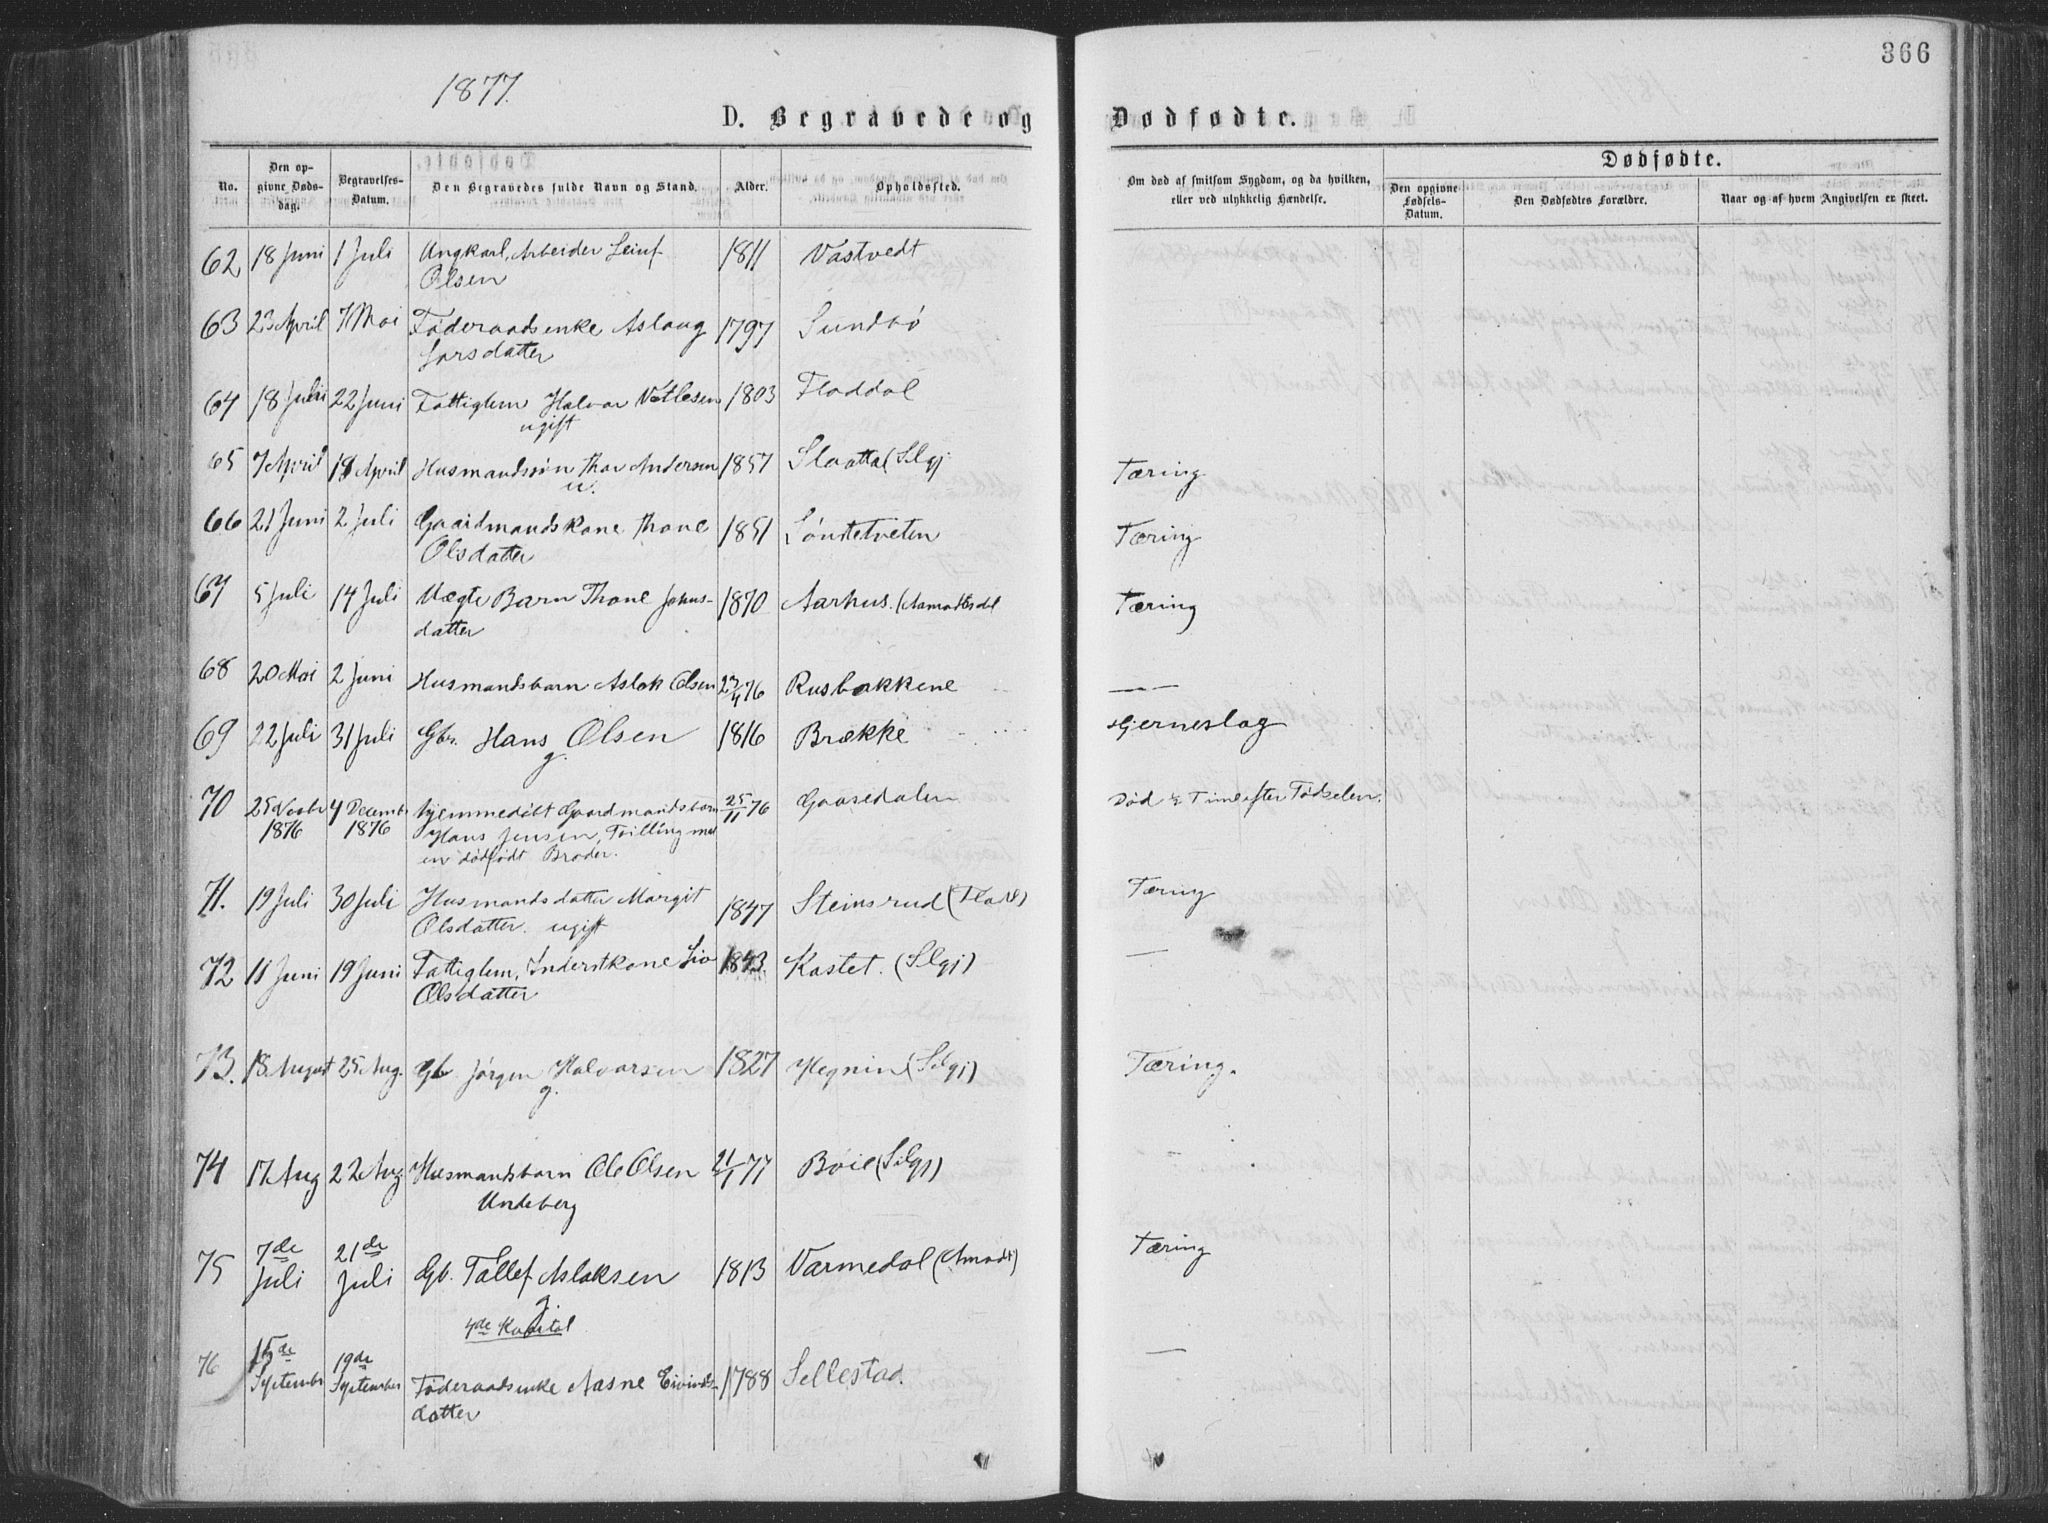 366
1877.
D. Begravede og Dødfødte.
No. Den opgivne Dødsdag. Begravelses-Datum. Den Begravedes fulde Navn og Stand. Alder. Opholdssted. Om død af smitsom Sygdom, og da hvilken, eller ved ulykkelig Hændelse. Dødfødte. Den opgivne Fødsels-Datum. Den Dødfødtes Forældre. Naar og af hvem Angivelsen er skeet.
62 18 Juni 1 Juli Ungkarl, Arbeider Leinf 1811 Vastvedt
Olsen
63 23 April 7 Mai Føderaadsenke Aslaug 1797 Sundbø
Larsdatter
64 18 Juni 22 Juni Fattiglem Halvor Vetlesen 1803 Floddal
ugift
65 7 April 18 April Husmandssøn Thor Andersen 1857 Slaatta (Silgj. Tæring
u.
66 21 Juni 2 Juli Gaardmandskone Thone 1851 Lønstetveten Tæring
Olsdatter
67 5 Juli 14 Juli Uægte Barn Thone Johns- 1870 Aarhus. (Aamodtsdal Tæring
datter
68 20 Mai 2 Juni Husmandsbarn Aslak Olsen 76 Rusbakkene —
69 22 Juli 31 Juli Gbr. Hans Olsen 1816 Brække Hjerneslag
g.
70 25 Novbr 4 Decembr hjemmedøbt Gaardmandsbarn 25/11 76 Gaasedalen Død ½ Time efter Fødselen.
1876 1876 Hans Jensen, Tvilling med
en dødfødt Broder.
71. 19 Juli 30 Juli Husmandsdatter Margit 1847 Steinsrud (Flatd) Tæring
Olsdatter. ugift
72 11 Juni 19 Juni Fattiglem, Inderstkone Liv 1843. Kastet. (Slgj) —
Olsdatter
73. 18 August 25 Aug. Gb. Jørgen Halvorsen 1827 Hegnin (Silgj) Tæring.
g.
74 17 Aug 22 Aug. Husmandsbarn Ole Olsen 21/1 77 Bøie (Silgj)
Undeberg
75 7de Juli 21de Juli Gb. Tallef Aslaksen 1813 Varmedal (Amodt) Tæring
g.
4de Kvartal
76 15de September 19de September Føderaadsenke Aasne Eivinds- 1788 Sellestad. —
datter